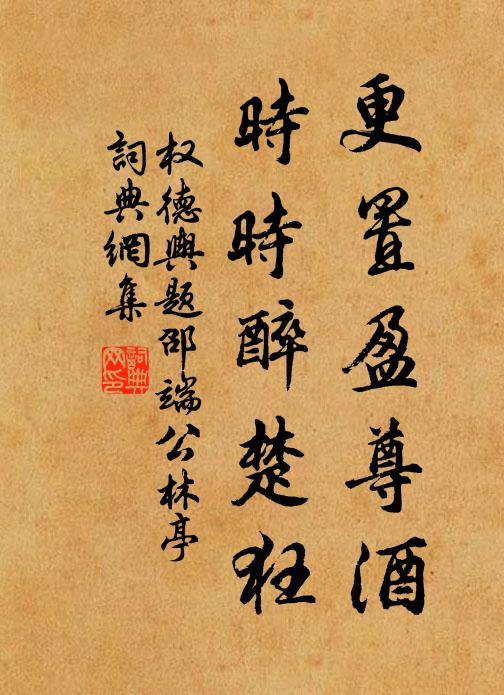 更置盈尊酒
時時醉楚狂
权德輿题邵端公林亭
詞典網集
詞典網印